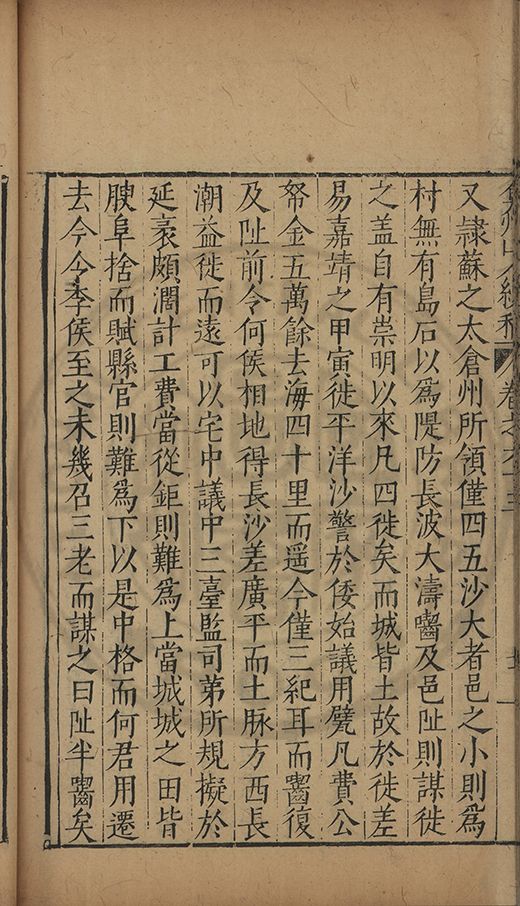 卷之六十三
又隷蘇之太倉州所領僅四五沙大者邑之小則爲
村無有島石以爲隄防長波大濤嚙及邑阯則謀徙
之盖自有崇明以來凡四徙矣而城皆土故於徙差
易嘉靖之甲寅徙平洋沙警於倭始議用甓凡費公
帑金五萬餘去海四十里而遥今僅三紀耳而齧復
及阯前令何侯相地得長沙差廣平而土脉方西長
潮益徙而遠可以宅中議中三臺監司第所規擬於
延袤頗濶計工費當從鉅則難爲上當城城之田皆
腴阜捨而賦縣官則難爲下以是中格而何君用遷
去今令李侯至之未幾召三老而謀之曰阯半齧矣